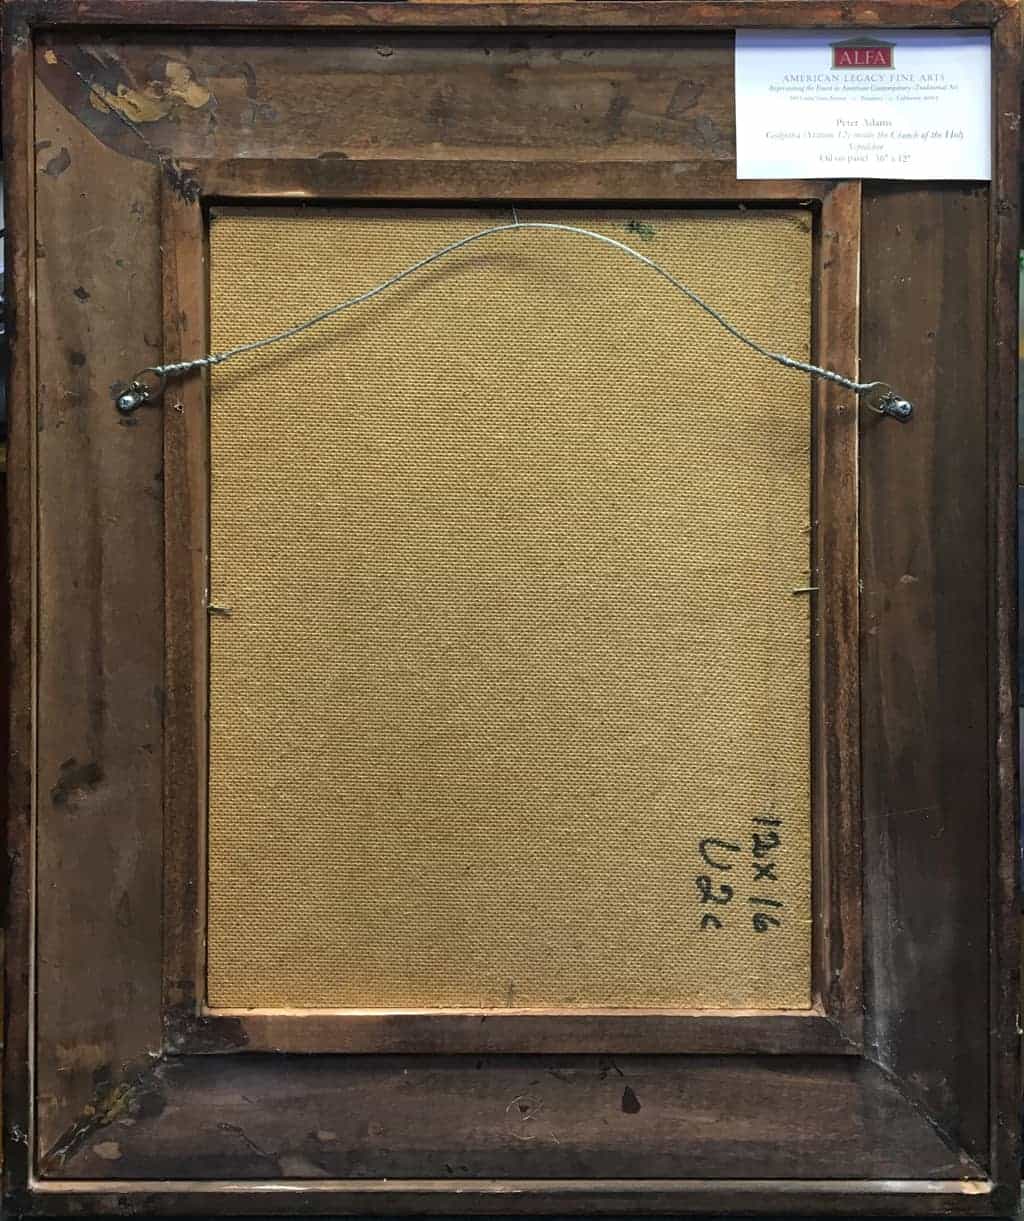 ALFA
AMERICAN LEGACY FINE ARTS
Representing the Finest in American Contemporary-Traditional Art
Pasadena California
Peter Adams
Golgotha (Station 12) inside the Church of the Holy
Sepulcher
Oil on panel 16" x 12"
12 x 16
U2c